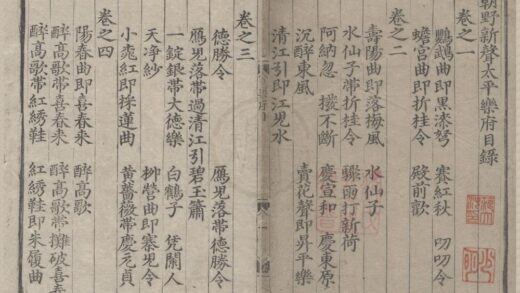 朝野新聲太平樂府目録
卷之一
鸚鵡曲即黒漆弩 賽紅秋 叨叨令
蟾宮曲即折桂令 殿前歡
卷之二
壽陽曲即落梅風 水仙子
水仙子帶折桂令 驟雨打新荷
阿納忽 撥不斷 慶宣和 慶東原
沉醉東風 賣花聲即昇平樂
清江引即江兒水
卷之三
德勝令 鴈兒落帶德勝令
鴈兒落帶過清江引碧玉簫
一錠銀帶大德樂 白鶴子 凭闌人
天净紗 柳營曲即寨兒令
小桃紅即採蓮曲 黄薔薇帶慶元貞
卷之四
陽春曲即喜春来 醉高歌
醉高歌帶喜春来 醉高歌帶攤破喜春
醉高歌帶紅綉鞋 紅綉鞋即朱履曲